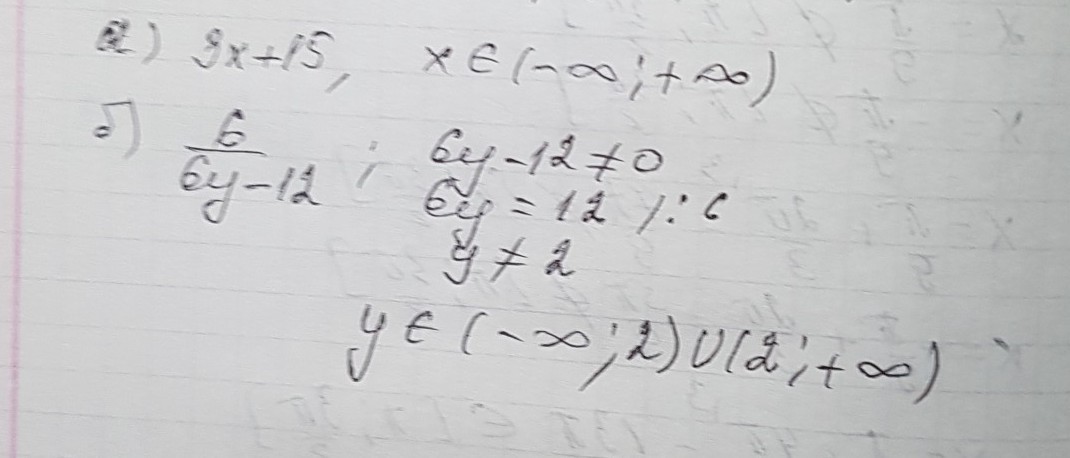 а) 9x+15, x∈(-∞;+∞)
б) 6/(6y-12) ; 6y-12≠0
6y=12 /:6
y≠2
y∈(-∞;2)∪(2;+∞)